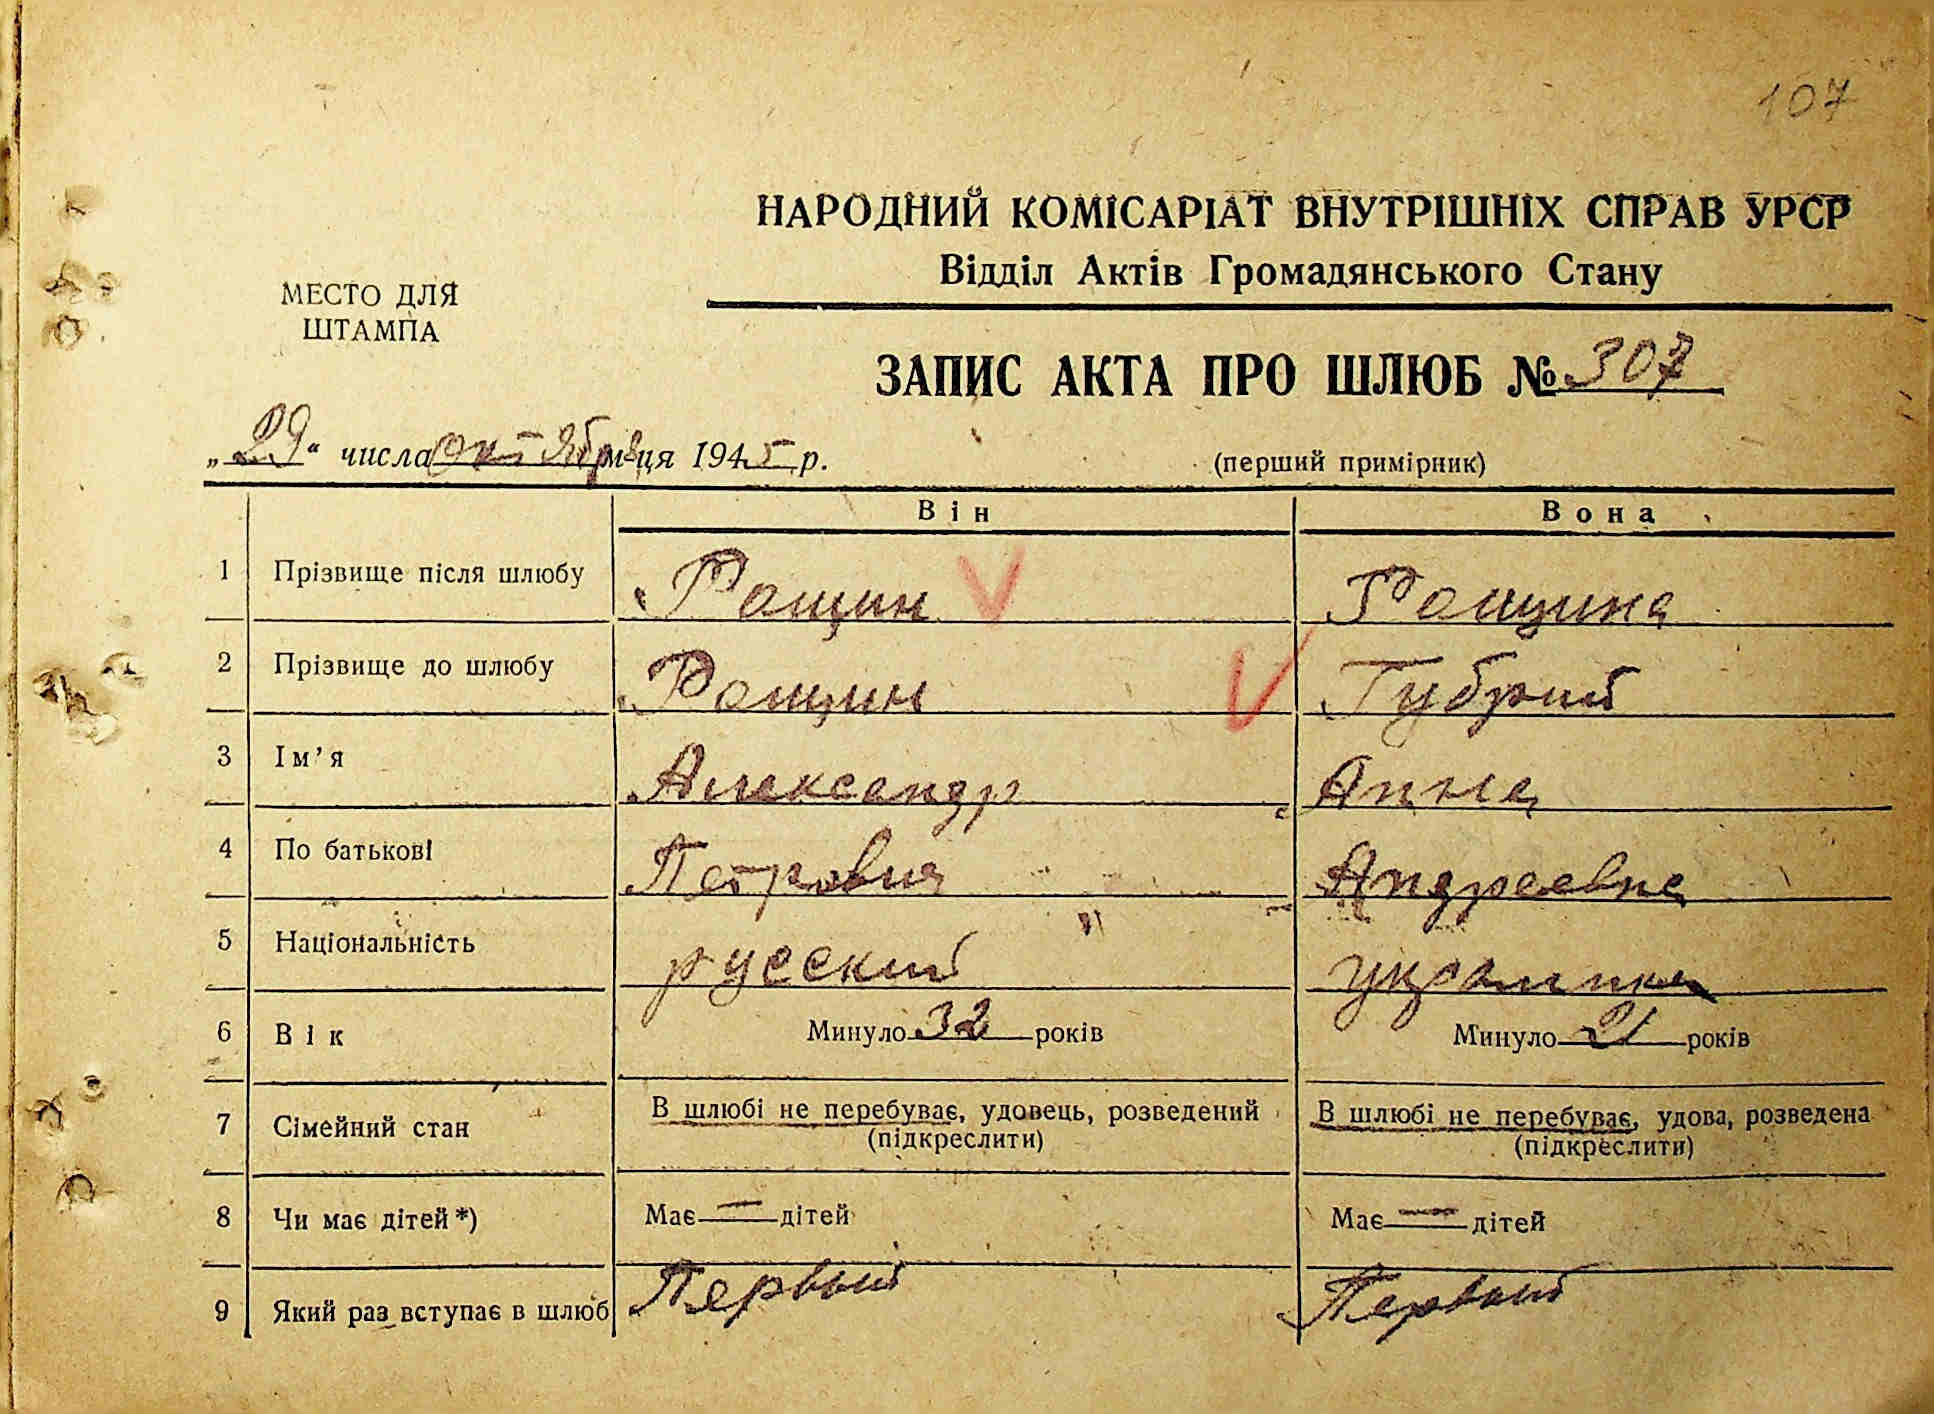 107
НАРОДНИЙ КОМІСАРІАТ ВНУТРІШНІХ СПРАВ УРСР
Відділ Актів Громадянського Стану
МЕСТО ДЛЯ
ШТАМПА
ЗАПИС АКТА ПРО ШЛЮБ № 307
„29“ числа октября м-ця 1945 р.
(перший примірник)
Він Вона
1 Прізвище після шлюбу Рощин Рощина
2 Прізвище до шлюбу Рощин Губрий
3 Ім’я Александр Анна
4 По батькові Петрович Андреевна
5 Національність русский украинка
6 Вік Минуло 32 років Минуло 21 років
7 Сімейний стан В шлюбі не перебуває, удовець, розведений В шлюбі не перебуває, удова, розведена
(підкреслити) (підкреслити)
8 Чи має дітей*) Має — дітей Має — дітей
9 Який раз вступає в шлюб Первый Первый